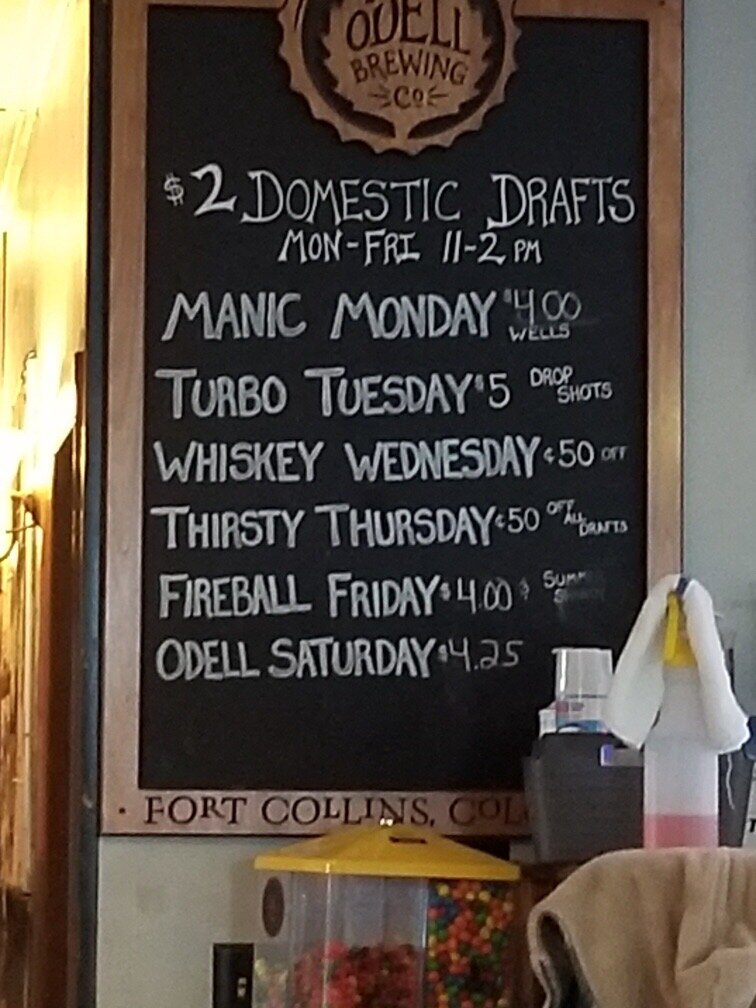 ODELL
BREWING
CO
$2 DOMESTIC DRAFTS
MON-FRI 11-2 PM
MANIC MONDAY $4.00 WELLS
TURBO TUESDAY $5 DROP SHOTS
WHISKEY WEDNESDAY ¢50 OFF
THIRSTY THURSDAY ¢50 OFF ALL DRAFTS
FIREBALL FRIDAY $4.00
ODELL SATURDAY $4.25
FORT COLLINS,